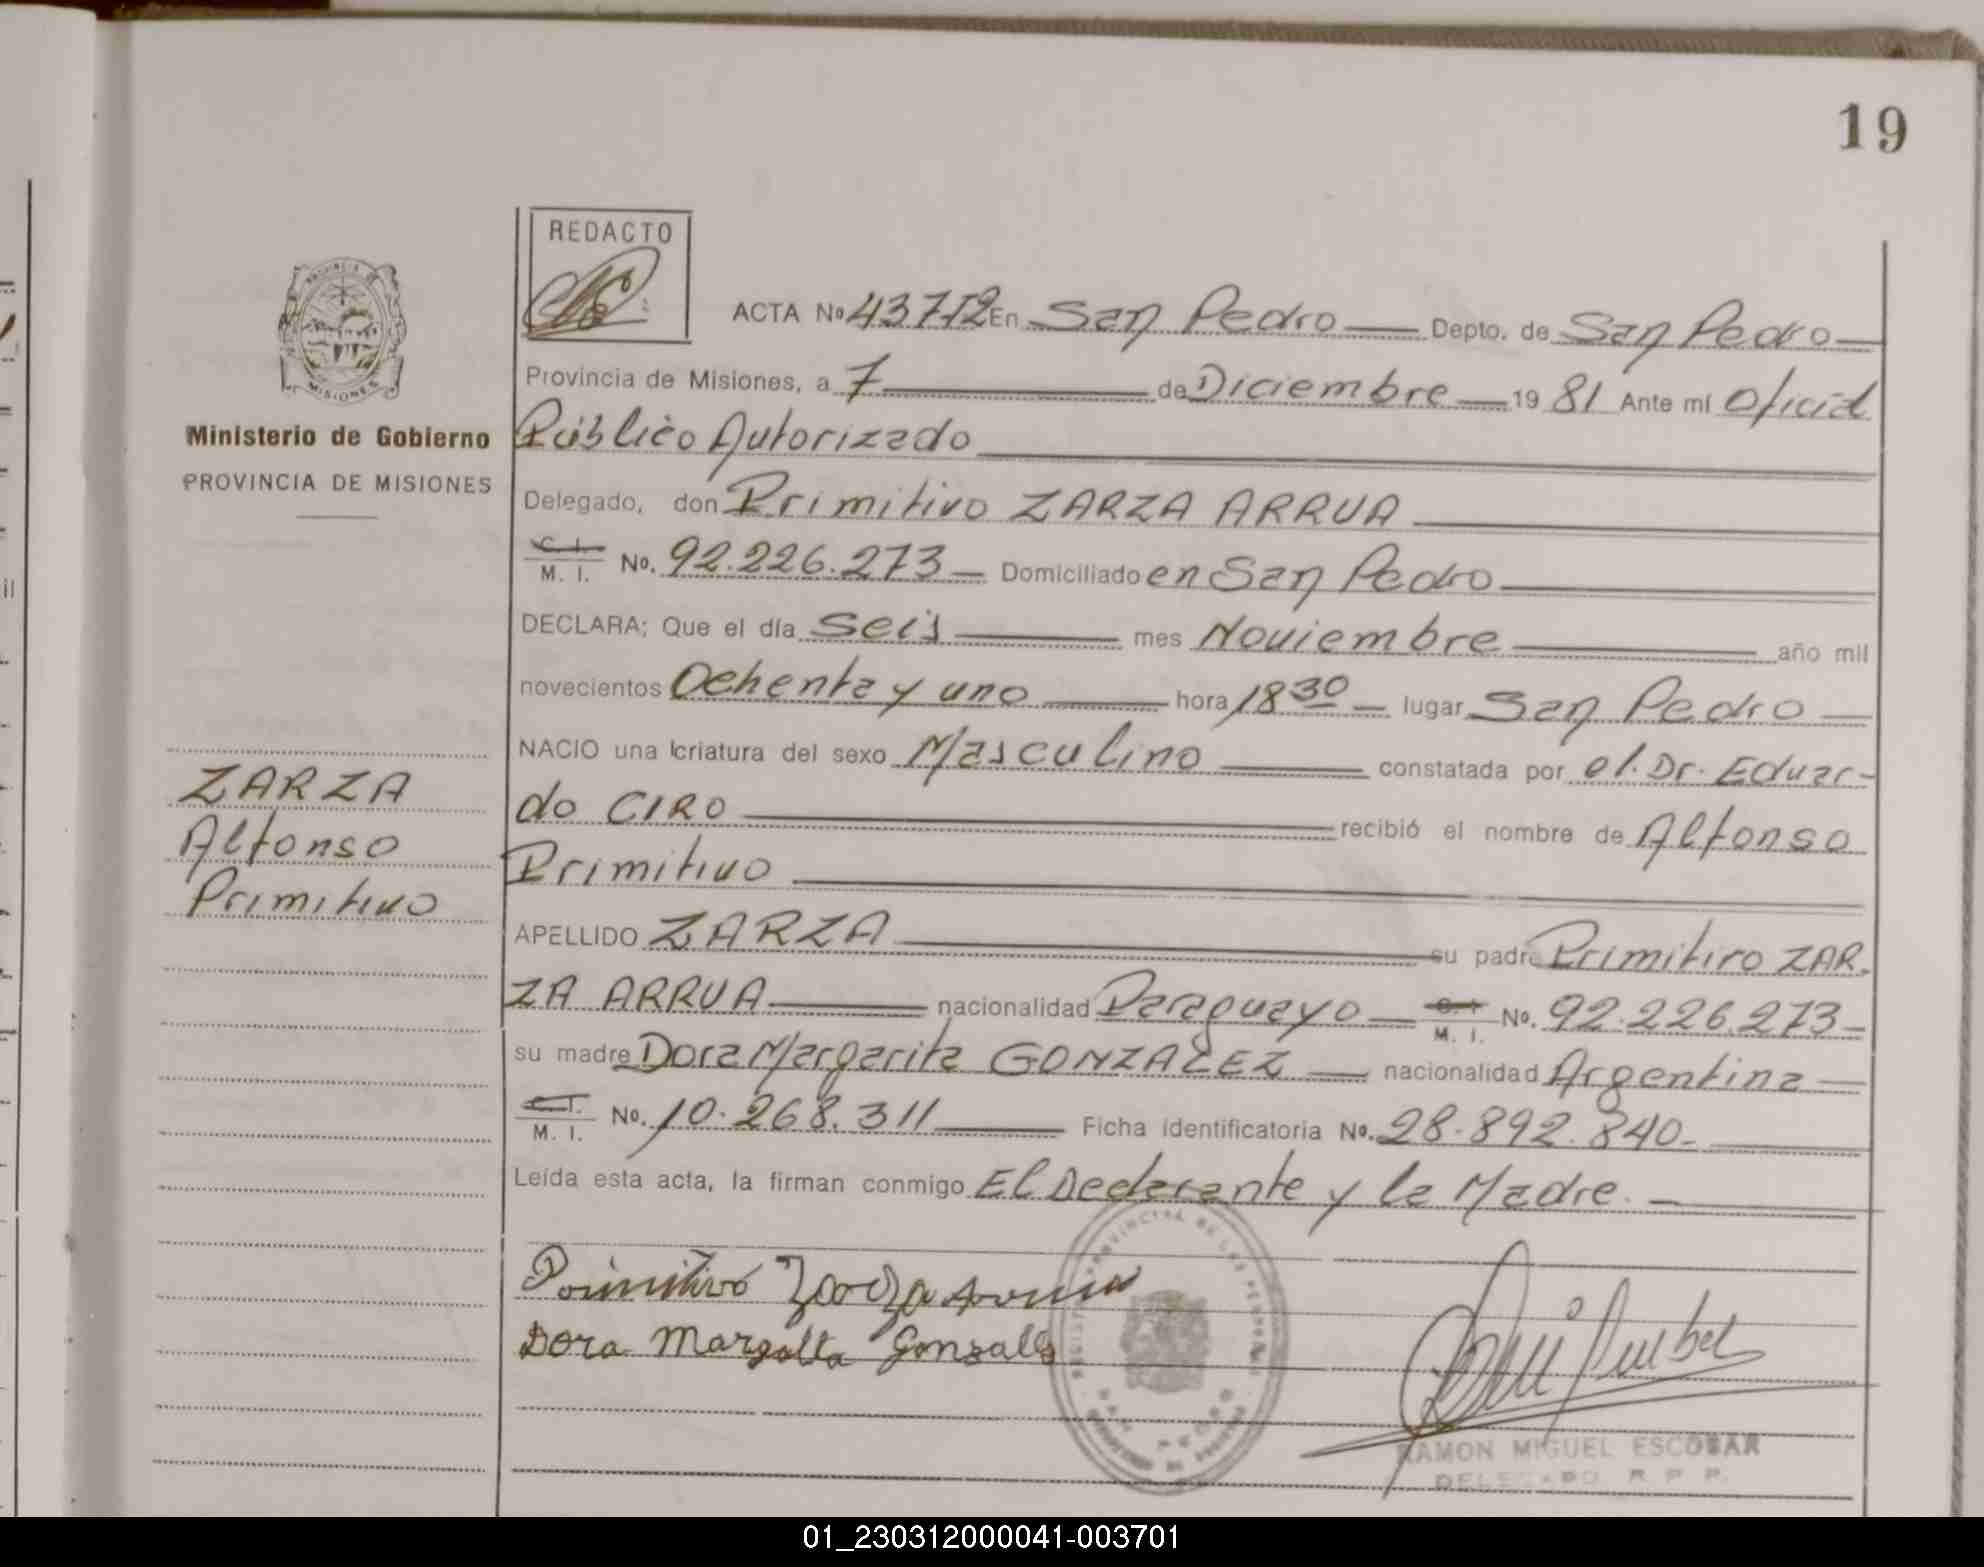 19
REDACTO
ACTA Nº 437-T2 En San Pedro Depto. de San Pedro
Provincia de Misiones, a 7 de Diciembre 19 81 Ante mí Oficial
Público Autorizado
Ministerio de Gobierno
PROVINCIA DE MISIONES
Delegado, don Primitivo ZARZA ARRUA
C. I.
M. I. Nº. 92.226.273 Domiciliado en San Pedro
DECLARA; Que el día seis mes Noviembre año mil
novecientos Ochenta y uno hora 18 30 lugar San Pedro
NACIO una criatura del sexo Masculino constatada por el. Dr. Eduar-
do CIRO recibió el nombre de Alfonso
Primitivo
ZARZA
Alfonso
Primitivo
APELLIDO ZARZA su padre Primitivo ZAR-
ZA ARRUA nacionalidad Paraguayo C. I. M. I. Nº. 92.226.273
su madre Dora Margarita GONZALEZ nacionalidad Argentina
C. I.
M. I. Nº. 10.268.311 Ficha identificatoria Nº. 28.892.840-
Leída esta acta, la firman conmigo El Declarante y la Madre.
Primitivo Zarza Arrua
Dora Margatta Gonzalez
MISIONES
RAMON MIGUEL ESCOBAR
DELEGADO R. P. P.
01_230312000041-003701